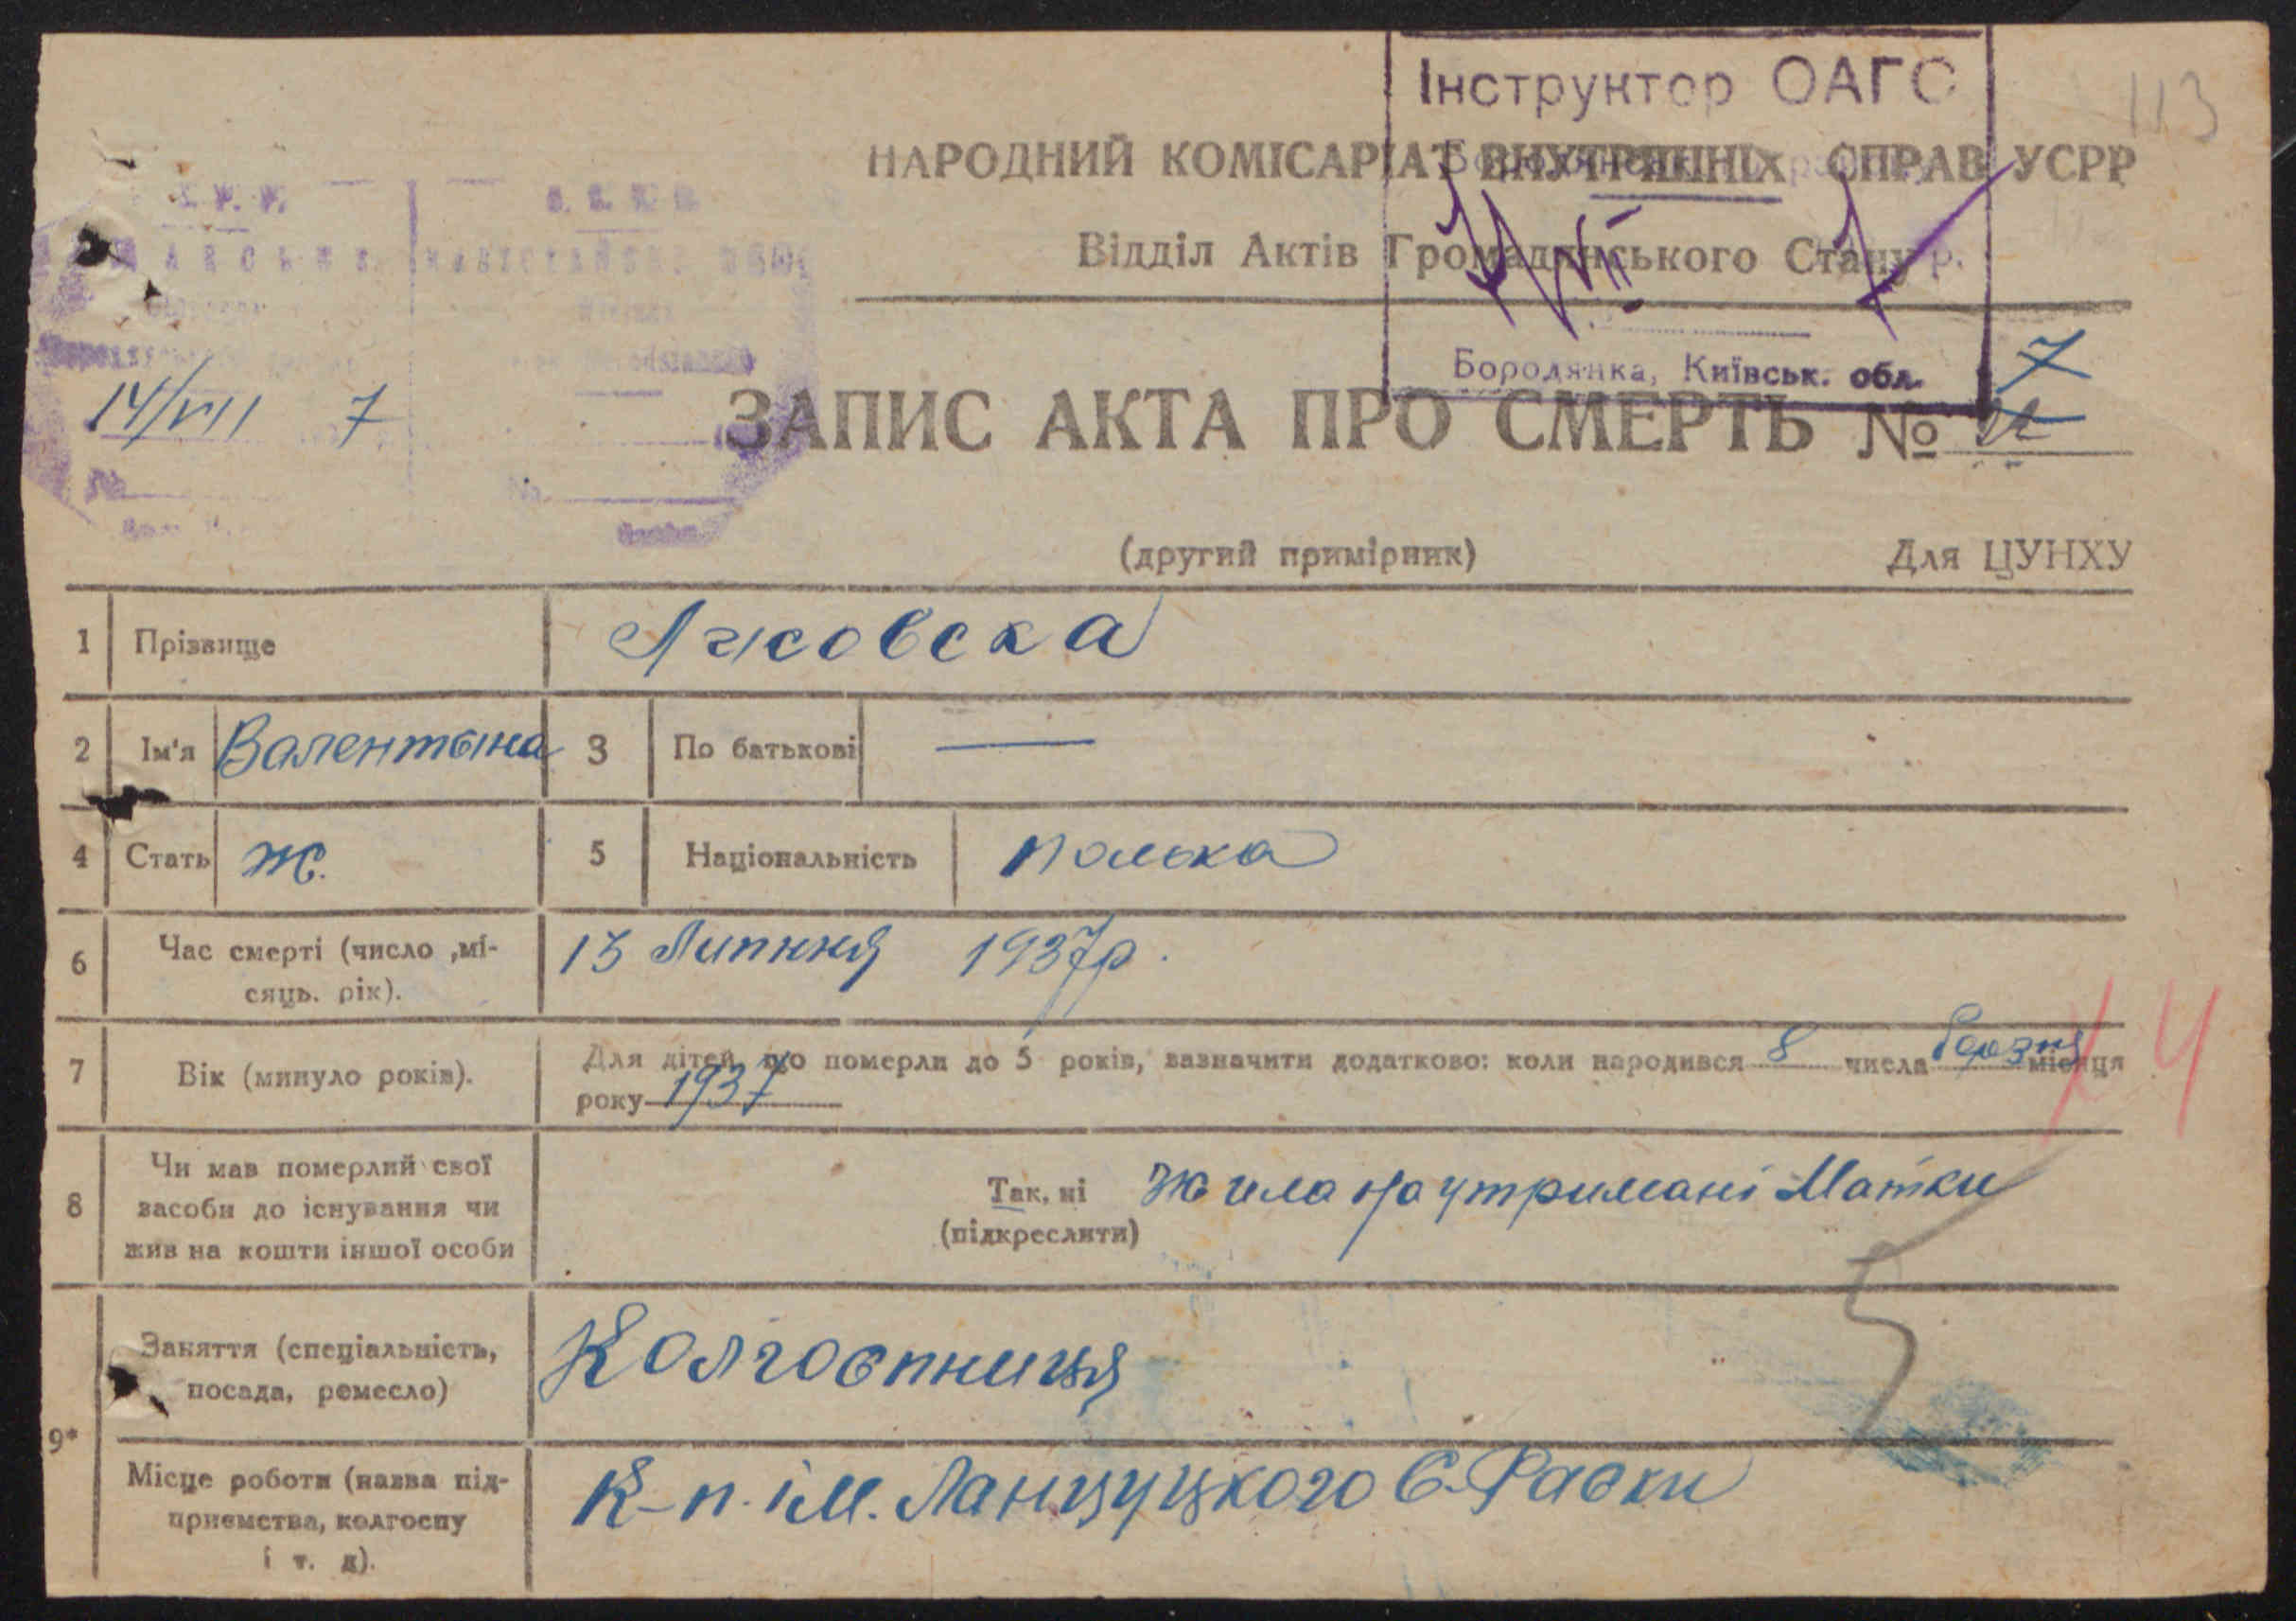 Інструктор ОАГС
113
НАРОДНИЙ КОМІСАРІАТ ВНУТРІШНІХ СПРАВ УСРР
Відділ Актів Громадянського Стану
р.
Бородянка, Київськ. обл.
14/VII 7
7
ЗАПИС АКТА ПРО СМЕРТЬ №
(другий примірник) Для ЦУНХУ
1 Прізвище Лжовска
2 Ім'я Валентина 3 По батькові —
4 Стать Ж. 5 Національність полька
6 Час смерті (число ,мі-
сяць. рік).
13 Липння 1937р.
7 Вік (минуло років).
Для дітей, що померли до 5 років, зазначити додатково: коли народився 8 числа березня місяця
року 1937
4
8 Чи мав померлий свої
засоби до існування чи
жив на кошти іншої особи
Так, ні Жила на утримані Матки
(підкреслити)
5
9* Заняття (спеціальність,
посада, ремесло)
Колгоспниця
Місце роботи (назва під-
приємства, колгоспу
і т. д).
К-п. ім. Ланцуцкого С. Раски